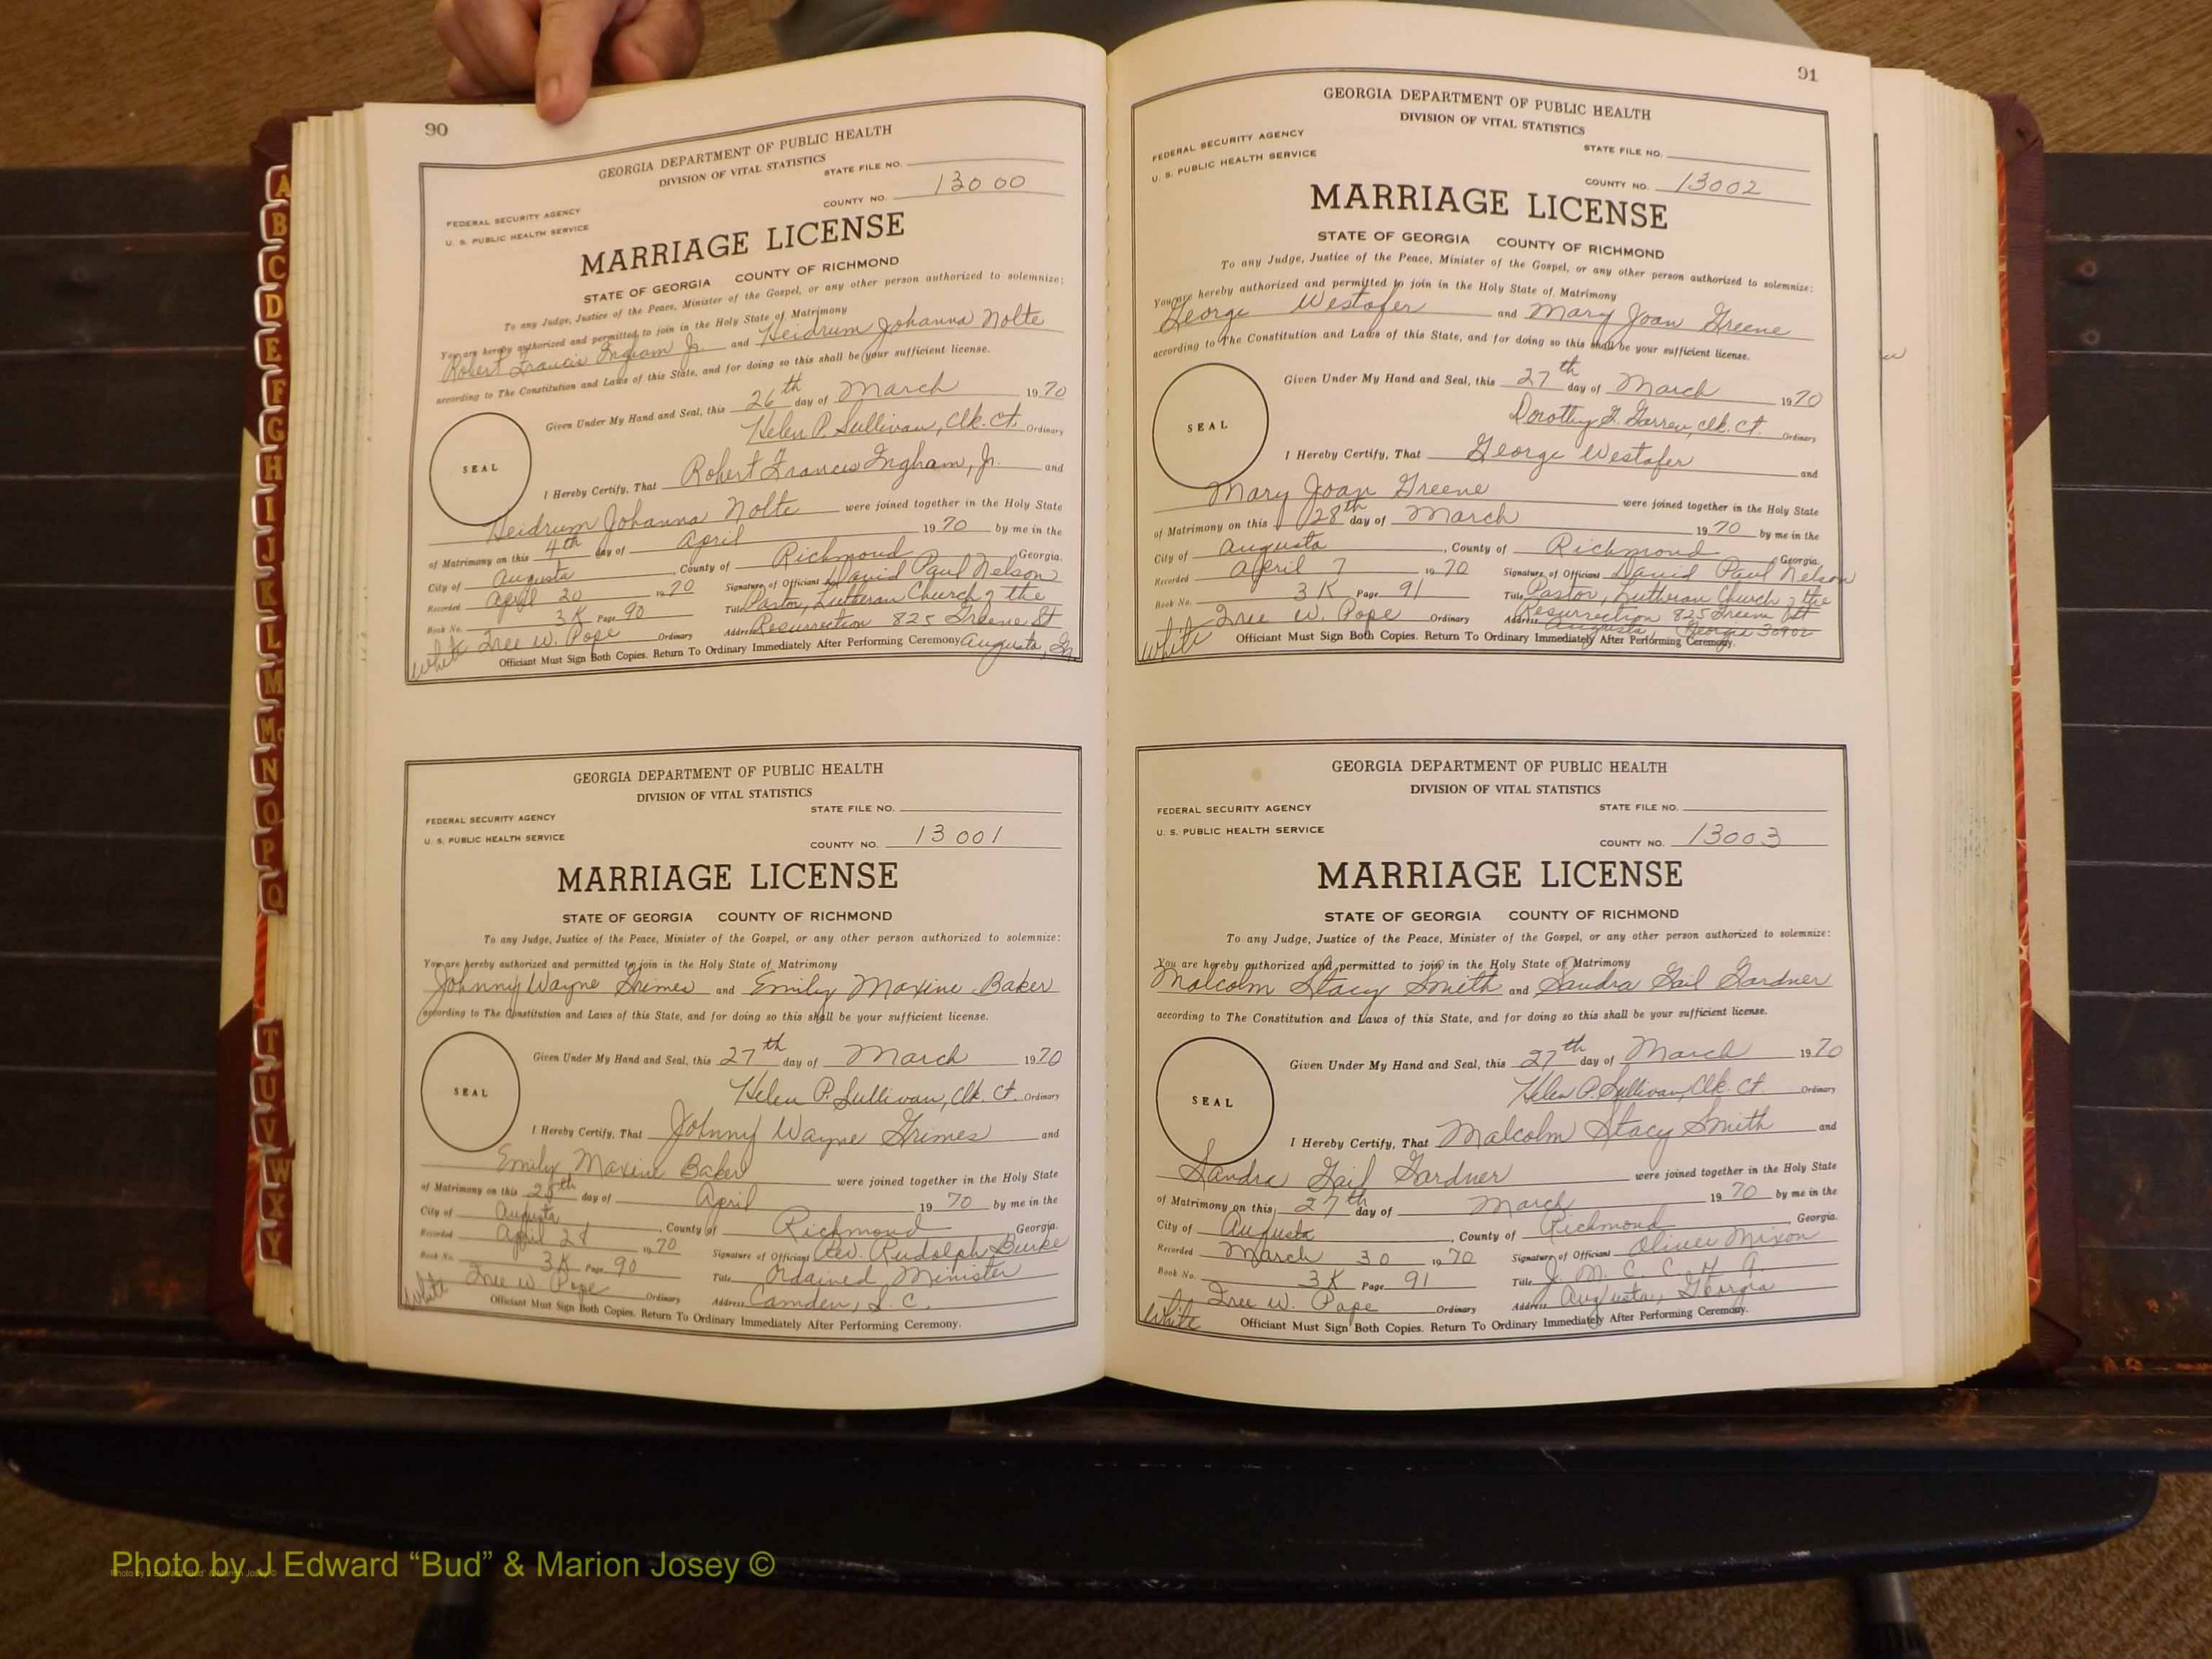 90
GEORGIA DEPARTMENT OF PUBLIC HEALTH
DIVISION OF VITAL STATISTICS
STATE FILE NO.
COUNTY NO. 13000
FEDERAL SECURITY AGENCY
U. S. PUBLIC HEALTH SERVICE
MARRIAGE LICENSE
STATE OF GEORGIA COUNTY OF RICHMOND
To any Judge, Justice of the Peace, Minister of the Gospel, or any other person authorized to solemnize:
You are hereby authorized and permitted to join in the Holy State of Matrimony
Robert Francis Ingham Jr. and Heidrum Johanna Nolte
according to The Constitution and Laws of this State, and for doing so this shall be your sufficient license.
Given Under My Hand and Seal, this 26th day of March 1970
Helen P. Sullivan, Clk. Ct. Ordinary
SEAL
I Hereby Certify, That Robert Francis Ingham, Jr. and
Heidrum Johanna Nolte were joined together in the Holy State
of Matrimony on this 4th day of April 1970 by me in the
City of Augusta, County of Richmond Georgia.
Recorded April 20 1970 Signature of Officiant David Paul Nelson
Book No. 3K Page 90 Title Pastor, Lutheran Church of the
Tree W. Pope Ordinary Address Resurrection 825 Greene St
White Officiant Must Sign Both Copies. Return To Ordinary Immediately After Performing Ceremony Augusta, Ga.
GEORGIA DEPARTMENT OF PUBLIC HEALTH
DIVISION OF VITAL STATISTICS
STATE FILE NO.
FEDERAL SECURITY AGENCY
U. S. PUBLIC HEALTH SERVICE
COUNTY NO. 13001
MARRIAGE LICENSE
STATE OF GEORGIA COUNTY OF RICHMOND
To any Judge, Justice of the Peace, Minister of the Gospel, or any other person authorized to solemnize:
You are hereby authorized and permitted to join in the Holy State of Matrimony
Johnny Wayne Grimes and Emily Maxine Baker
according to The Constitution and Laws of this State, and for doing so this shall be your sufficient license.
Given Under My Hand and Seal, this 27th day of March 1970
Helen P. Sullivan, Clk. Ct. Ordinary
SEAL
I Hereby Certify, That Johnny Wayne Grimes and
Emily Maxine Baker were joined together in the Holy State
of Matrimony on this day of April 1970 by me in the
City of Augusta, County of Richmond Georgia.
Recorded April 1970 Signature of Officiant Rev. Rudolph Burke
Book No. 3K Page 90 Title Ordained Minister
Tree W. Pope Ordinary Address Camden, S. C.
White Officiant Must Sign Both Copies. Return To Ordinary Immediately After Performing Ceremony.
91
GEORGIA DEPARTMENT OF PUBLIC HEALTH
DIVISION OF VITAL STATISTICS
FEDERAL SECURITY AGENCY
U. S. PUBLIC HEALTH SERVICE
STATE FILE NO.
COUNTY NO. 13002
MARRIAGE LICENSE
STATE OF GEORGIA COUNTY OF RICHMOND
To any Judge, Justice of the Peace, Minister of the Gospel, or any other person authorized to solemnize:
You are hereby authorized and permitted to join in the Holy State of Matrimony
George Westafer and Mary Joan Greene
according to The Constitution and Laws of this State, and for doing so this shall be your sufficient license.
Given Under My Hand and Seal, this 27th day of March 1970
Dorothy Clk. Ct. Ordinary
SEAL
I Hereby Certify, That George Westafer and
Mary Joan Greene were joined together in the Holy State
of Matrimony on this 28th day of March 1970 by me in the
City of Augusta, County of Richmond Georgia.
Recorded April 7 1970 Signature of Officiant David Paul Nelson
Book No. 3K Page 91 Title Pastor, Lutheran Church of the
Tree W. Pope Ordinary Address Resurrection 825 Greene St
Augusta, Georgia 30902
White Officiant Must Sign Both Copies. Return To Ordinary Immediately After Performing Ceremony.
GEORGIA DEPARTMENT OF PUBLIC HEALTH
DIVISION OF VITAL STATISTICS
FEDERAL SECURITY AGENCY
STATE FILE NO.
U. S. PUBLIC HEALTH SERVICE
COUNTY NO. 13003
MARRIAGE LICENSE
STATE OF GEORGIA COUNTY OF RICHMOND
To any Judge, Justice of the Peace, Minister of the Gospel, or any other person authorized to solemnize:
You are hereby authorized and permitted to join in the Holy State of Matrimony
Malcolm Stacy Smith and Sandra Gail Gardner
according to The Constitution and Laws of this State, and for doing so this shall be your sufficient license.
Given Under My Hand and Seal, this 27th day of March 1970
Helen P. Sullivan, Clk. Ct. Ordinary
SEAL
I Hereby Certify, That Malcolm Stacy Smith and
Sandra Gail Gardner were joined together in the Holy State
of Matrimony on this 27th day of March 1970 by me in the
City of Augusta, County of Richmond Georgia.
Recorded March 30 1970 Signature of Officiant Oliver Mixon
Book No. 3K Page 91 Title J. M. C. C. H. A.
Tree W. Pope Ordinary Address Augusta, Georgia
White Officiant Must Sign Both Copies. Return To Ordinary Immediately After Performing Ceremony.
A
B
C
D
E
F
G
H
I
J
K
L
M
Mc
N
O
P
Q
T
U
V
W
X
Y
Photo by J Edward “Bud” & Marion Josey ©